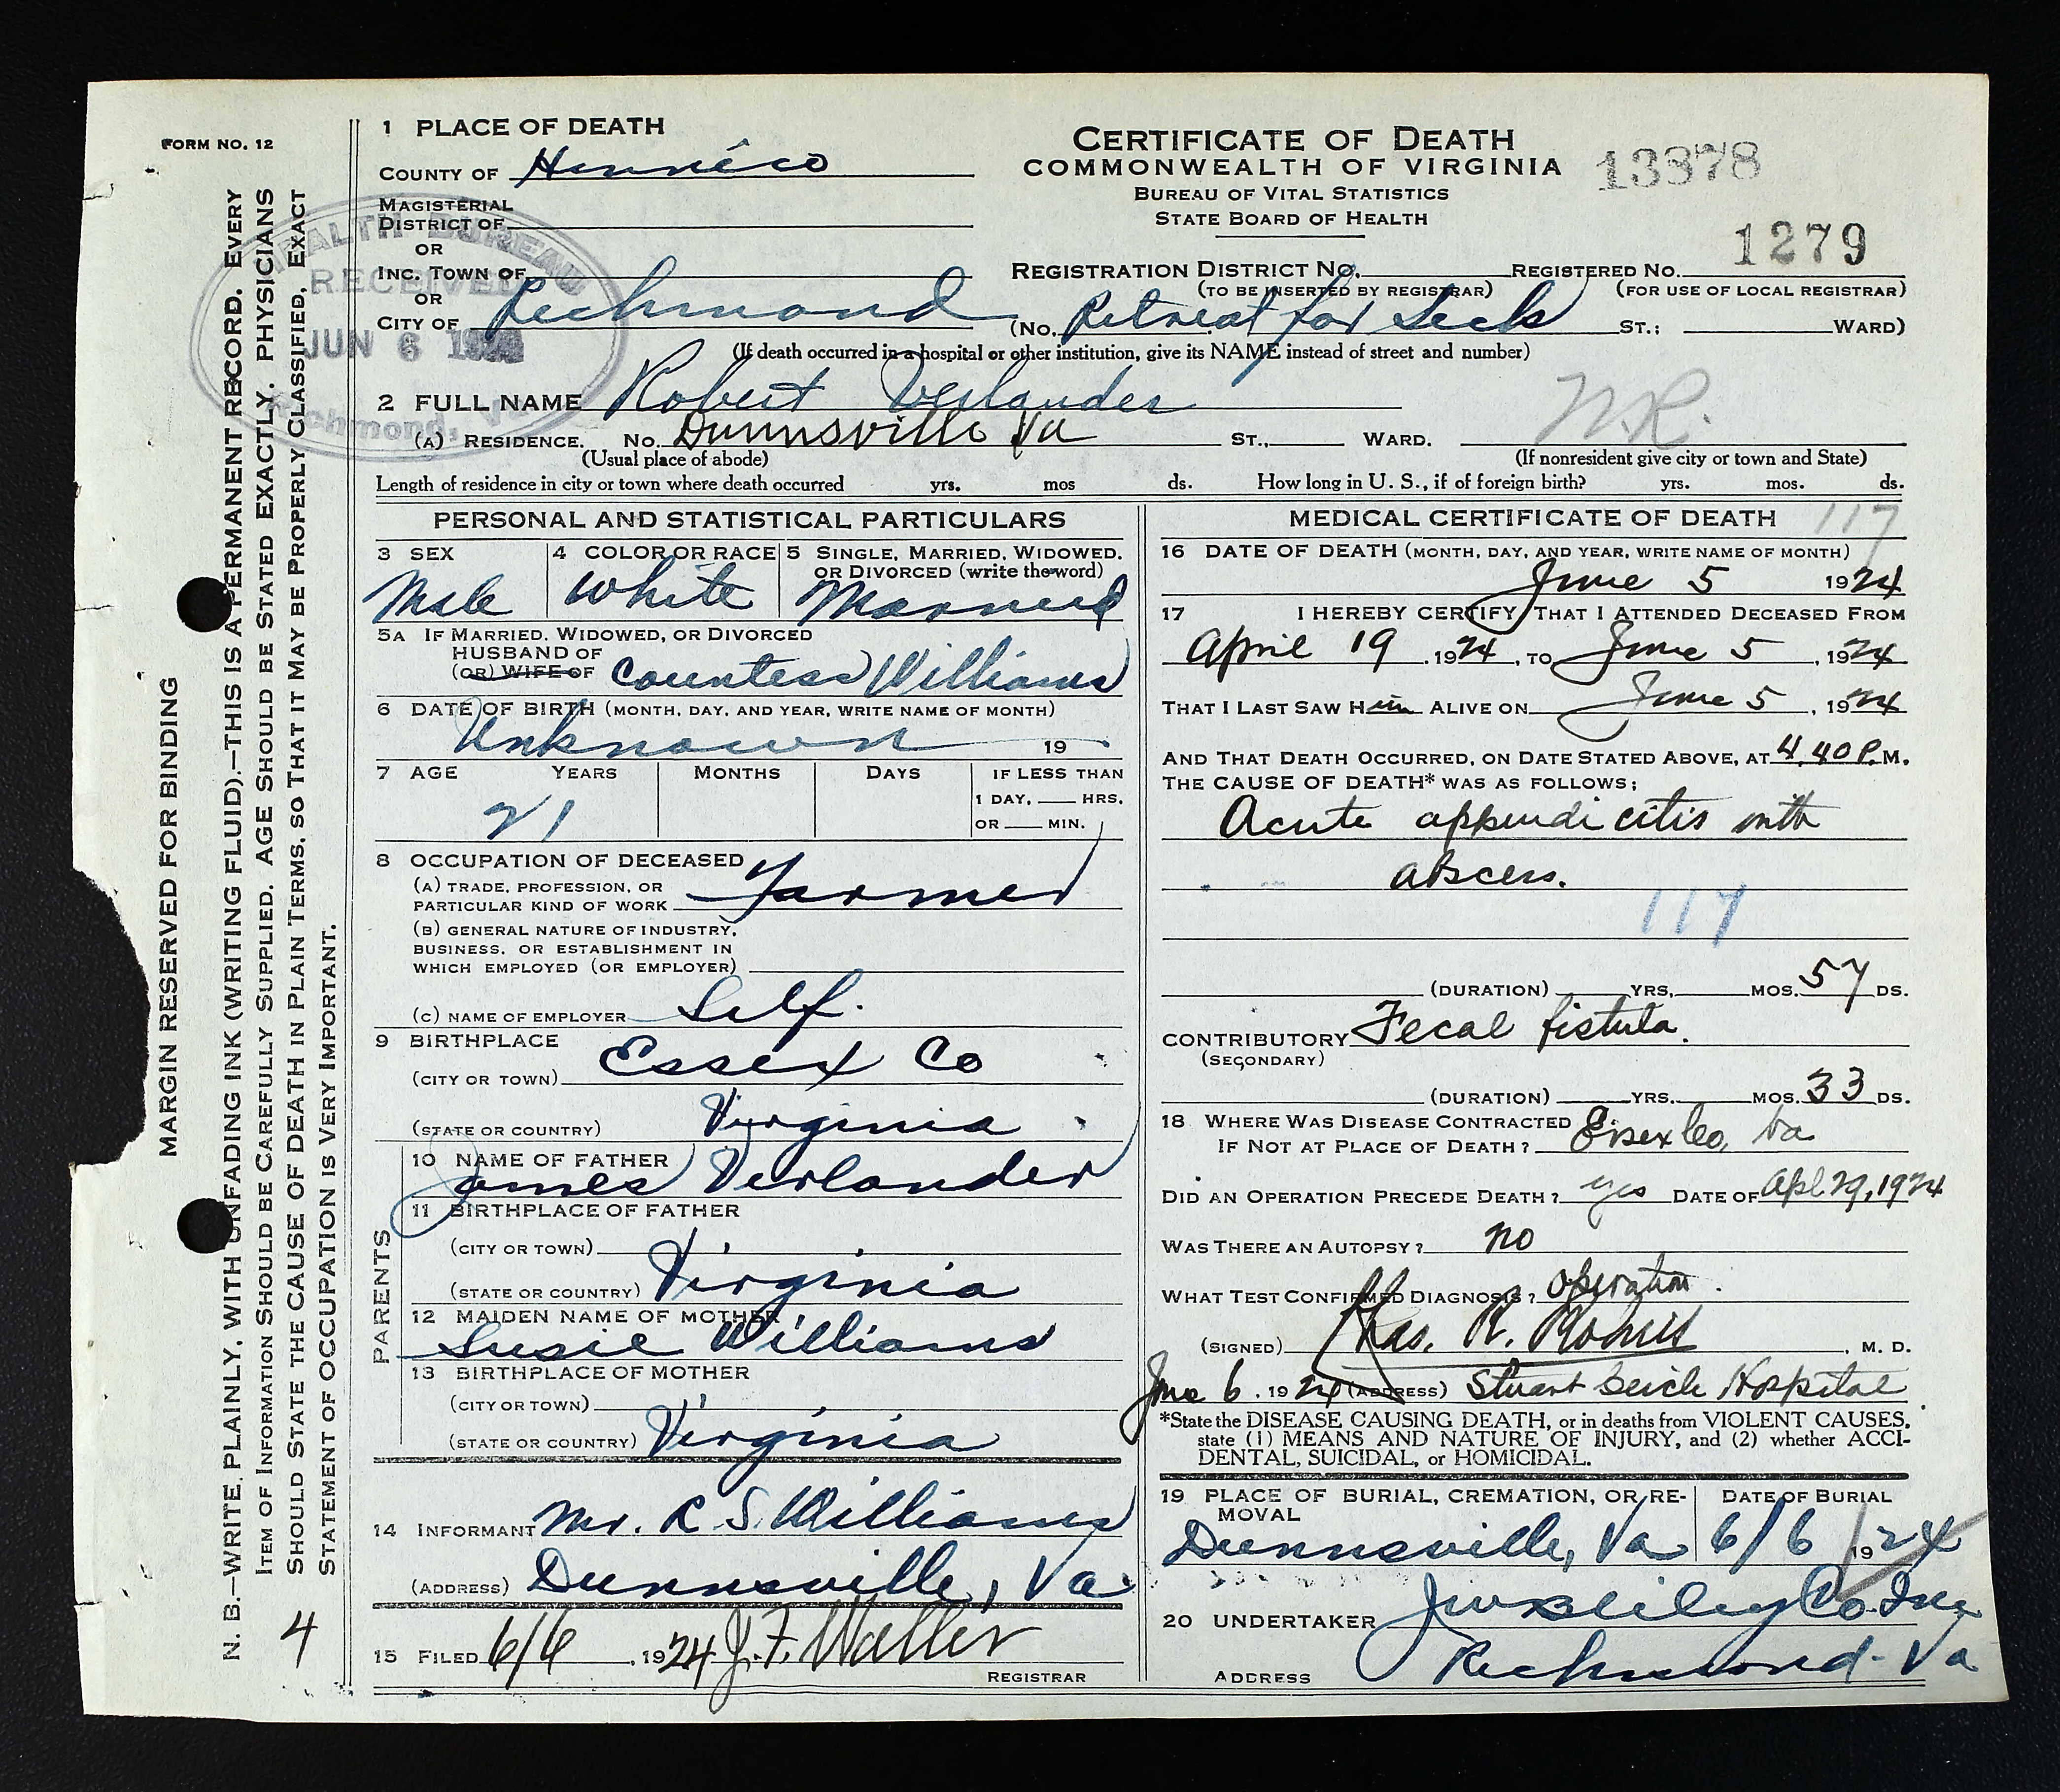 FORM NO. 12
MARGIN RESERVED FOR BINDING
N. B.—WRITE PLAINLY, WITH UNFADING INK (WRITING FLUID).—THIS IS A PERMANENT RECORD. EVERY
ITEM OF INFORMATION SHOULD BE CAREFULLY SUPPLIED. AGE SHOULD BE STATED EXACTLY. PHYSICIANS
SHOULD STATE THE CAUSE OF DEATH IN PLAIN TERMS, SO THAT IT MAY BE PROPERLY CLASSIFIED. EXACT
STATEMENT OF OCCUPATION IS VERY IMPORTANT.
4
HEALTH BUREAU
RECEIVED
JUN 6
Richmond, Va.
CERTIFICATE OF DEATH
COMMONWEALTH OF VIRGINIA
BUREAU OF VITAL STATISTICS
STATE BOARD OF HEALTH
13378
1279
1 PLACE OF DEATH
COUNTY OF Henrico
MAGISTERIAL
DISTRICT OF
OR
INC. TOWN OF
OR
CITY OF Richmond
REGISTRATION DISTRICT NO. REGISTERED NO.
(TO BE INSERTED BY REGISTRAR) (FOR USE OF LOCAL REGISTRAR)
(No. Retreat for Sick ST.; WARD)
(If death occurred in a hospital or other institution, give its NAME instead of street and number)
2 FULL NAME Robert Verlander
N.R.
(A) RESIDENCE. No. Dunnsville Va ST., WARD.
(Usual place of abode) (If nonresident give city or town and State)
Length of residence in city or town where death occurred yrs. mos ds. How long in U. S., if of foreign birth? yrs. mos. ds.
PERSONAL AND STATISTICAL PARTICULARS
3 SEX 4 COLOR OR RACE 5 SINGLE, MARRIED, WIDOWED,
OR DIVORCED (write the word)
Male White Married
5A IF MARRIED, WIDOWED, OR DIVORCED
HUSBAND OF
(OR) WIFE OF Countess Williams
6 DATE OF BIRTH (MONTH, DAY, AND YEAR, WRITE NAME OF MONTH)
Unknown 19
7 AGE YEARS MONTHS DAYS IF LESS THAN
1 DAY, HRS.
OR MIN.
21
8 OCCUPATION OF DECEASED
(A) TRADE, PROFESSION, OR
PARTICULAR KIND OF WORK Farmer
(B) GENERAL NATURE OF INDUSTRY,
BUSINESS, OR ESTABLISHMENT IN
WHICH EMPLOYED (OR EMPLOYER)
(C) NAME OF EMPLOYER Self.
9 BIRTHPLACE
(CITY OR TOWN) Essex Co
(STATE OR COUNTRY) Virginia
PARENTS
10 NAME OF FATHER
James Verlander
11 BIRTHPLACE OF FATHER
(CITY OR TOWN)
(STATE OR COUNTRY) Virginia
12 MAIDEN NAME OF MOTHER
Susie Williams
13 BIRTHPLACE OF MOTHER
(CITY OR TOWN)
(STATE OR COUNTRY) Virginia
14 INFORMANT Mr. R S. Williams
(ADDRESS) Dunnsville, Va
15 FILED 6/6, 1924 J. F. Waller
REGISTRAR
MEDICAL CERTIFICATE OF DEATH 117
16 DATE OF DEATH (MONTH, DAY, AND YEAR, WRITE NAME OF MONTH)
June 5 1924
17 I HEREBY CERTIFY THAT I ATTENDED DECEASED FROM
April 19, 1924, TO June 5, 1924
THAT I LAST SAW Him ALIVE ON June 5, 1924
AND THAT DEATH OCCURRED, ON DATE STATED ABOVE, AT 4.40 P. M.
THE CAUSE OF DEATH* WAS AS FOLLOWS:
Acute appendicitis with
abscess.
117
(DURATION) YRS. MOS. 57 DS.
CONTRIBUTORY Fecal fistula.
(SECONDARY)
(DURATION) YRS. MOS. 33 DS.
18 WHERE WAS DISEASE CONTRACTED
IF NOT AT PLACE OF DEATH? Essex Co, Va
DID AN OPERATION PRECEDE DEATH? yes DATE OF Apl 29, 1924
WAS THERE AN AUTOPSY? no
WHAT TEST CONFIRMED DIAGNOSIS? Operation.
(SIGNED) Chas. R. Robins, M. D.
June 6, 1924 (ADDRESS) Stuart Circle Hospital
*State the DISEASE CAUSING DEATH, or in deaths from VIOLENT CAUSES,
state (1) MEANS AND NATURE OF INJURY, and (2) whether ACCI-
DENTAL, SUICIDAL, or HOMICIDAL.
19 PLACE OF BURIAL, CREMATION, OR RE-
MOVAL DATE OF BURIAL
Dunnsville, Va 6/6 1924
20 UNDERTAKER J W Bliley Co. Inc
ADDRESS Richmond-Va